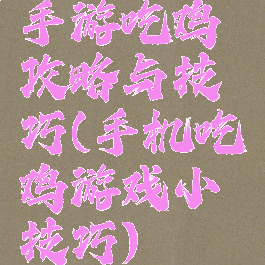 手游吃鸡
攻略与技
巧(手机吃
鸡游戏小
技巧)